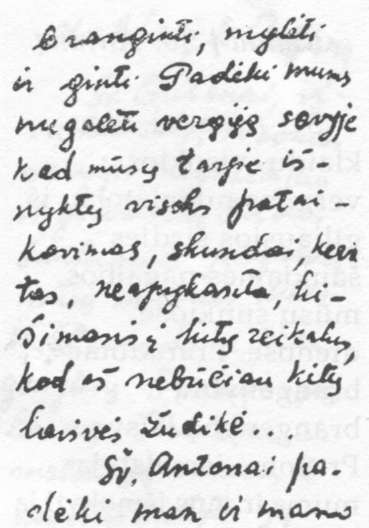 branginti, mylėti
ir ginti Padėki mums
nugalėti vergiją savyje
kad mūsų tarpe iš-
nyktų visoks patai-
kavimas, skundai, kerš
tas, neapykanta, ki-
šimasis į kitų reikalus,
kad aš nebūčiau kitų
laisvės žudikė...
Šv. Antanai pa-
dėki man ir mano